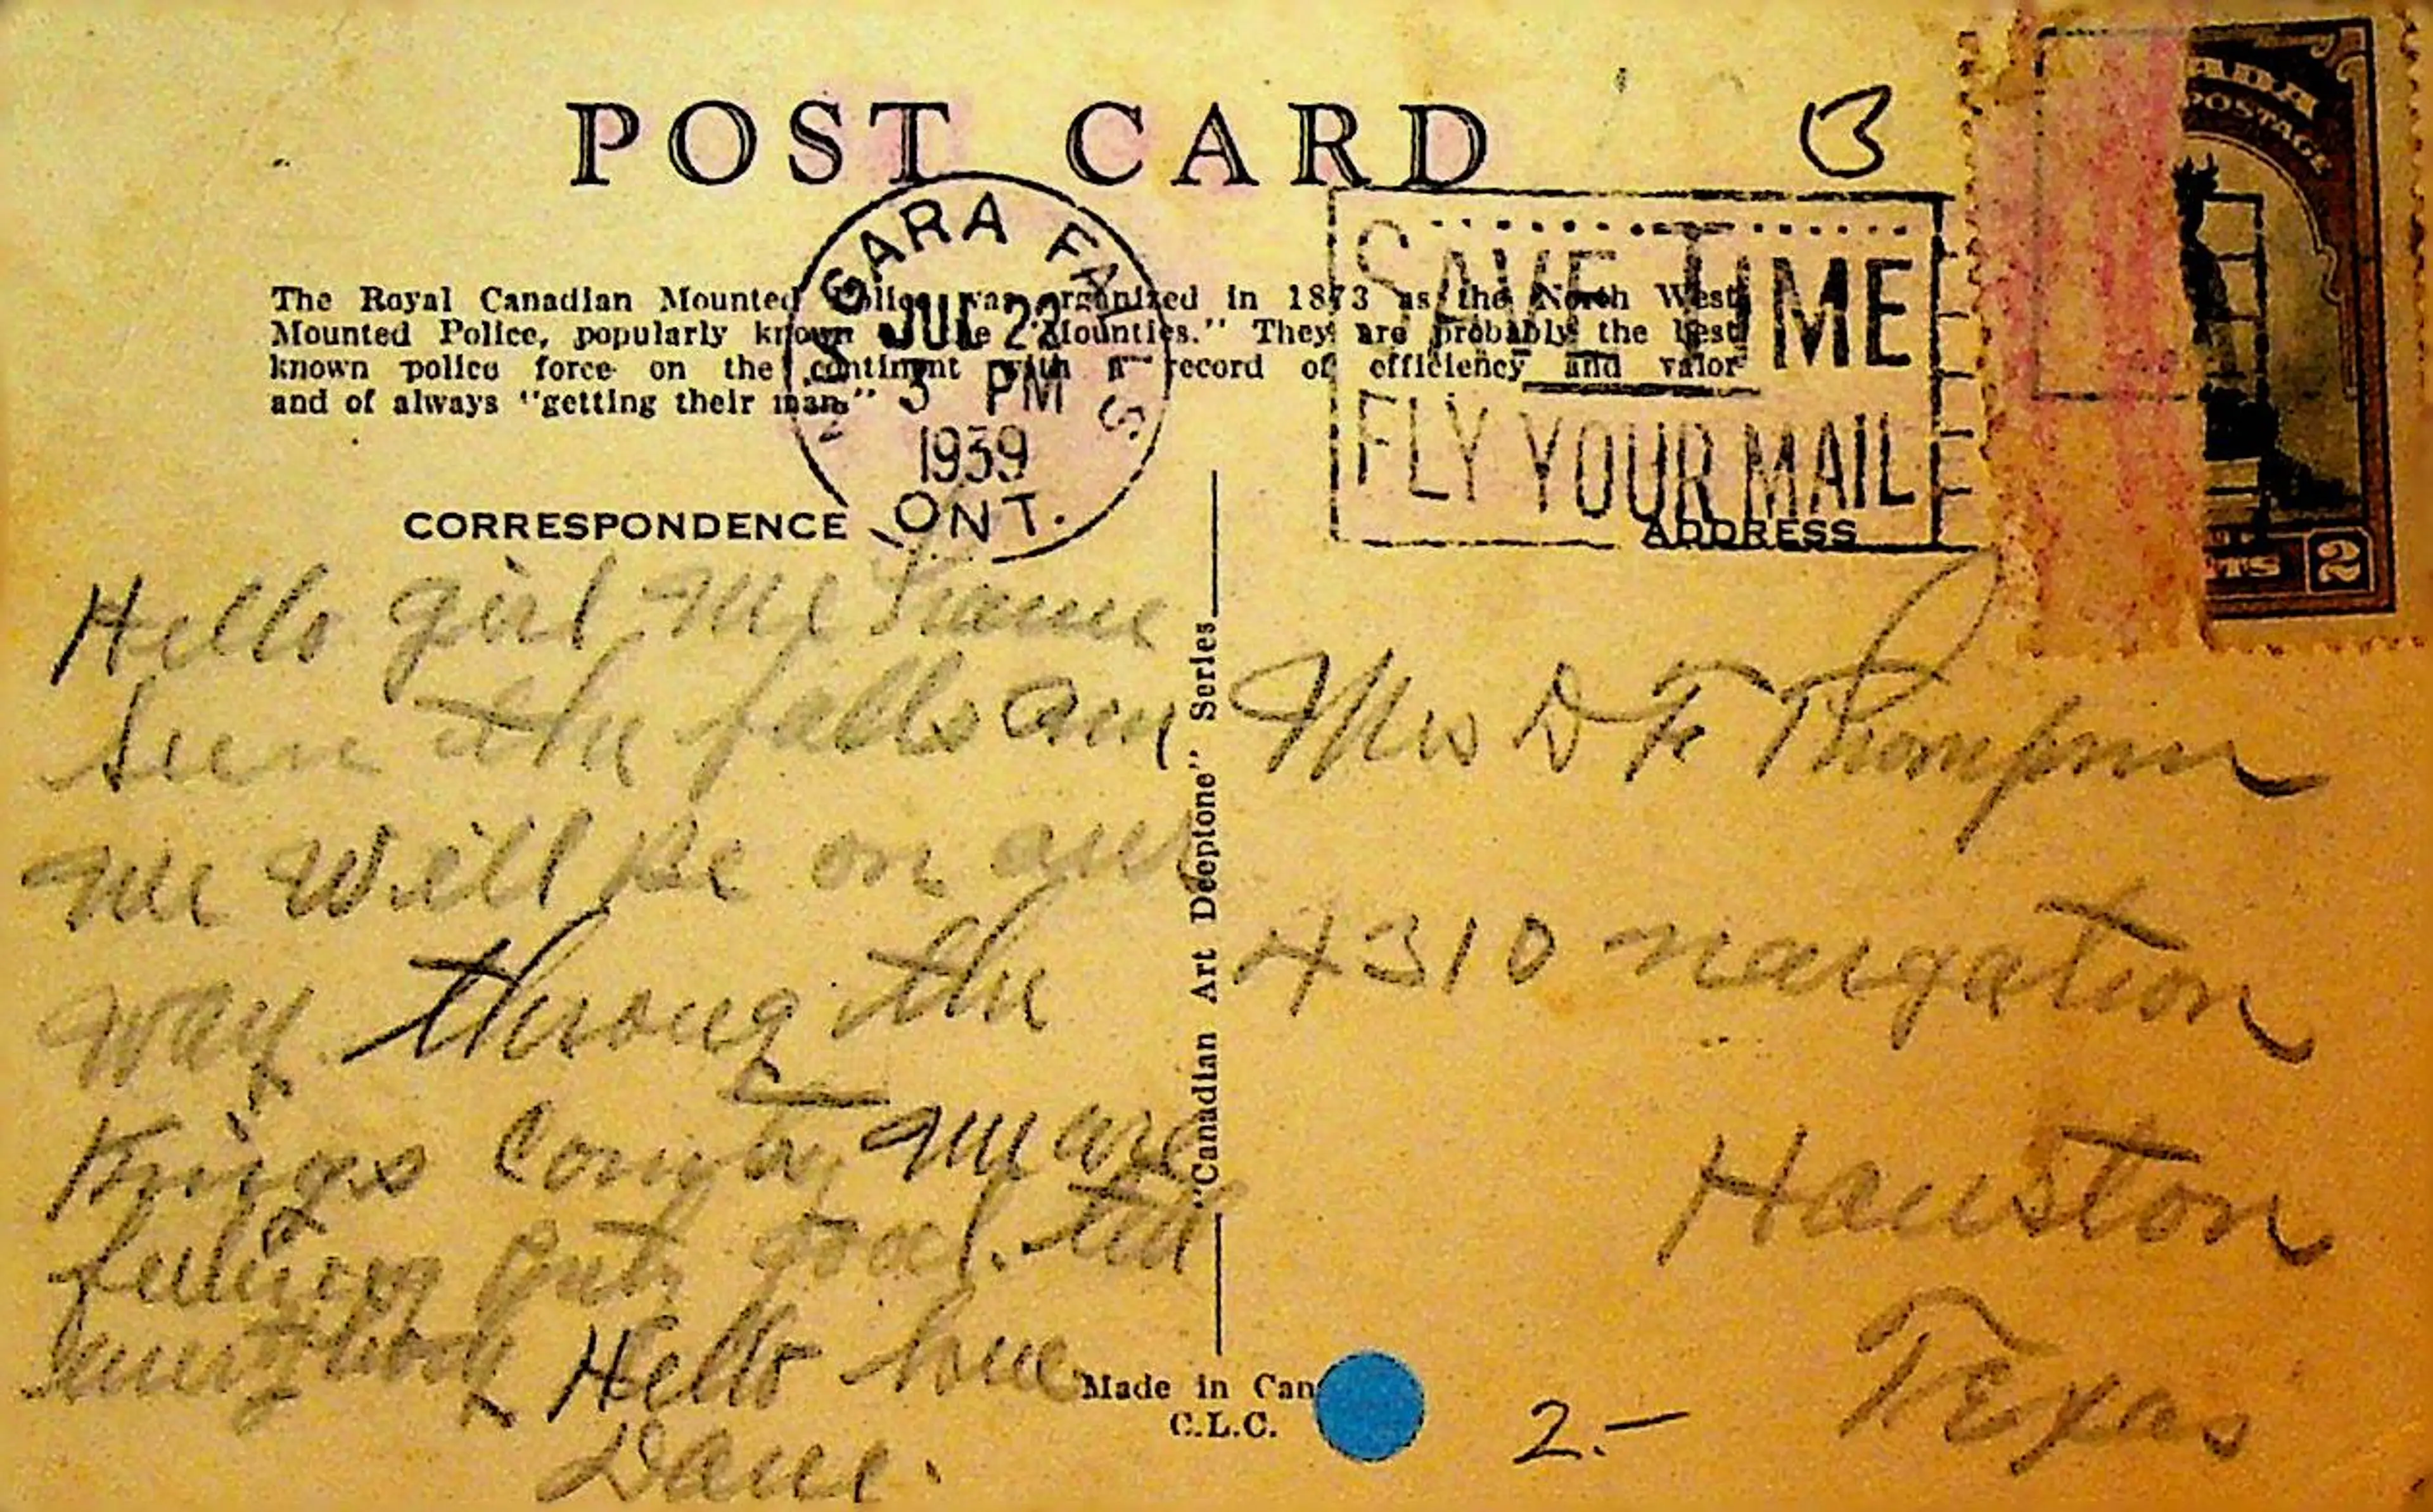 POST CARD
B
CANADA
POSTAGE
2
The Royal Canadian Mounted Police was organized in 1873 as the North West
Mounted Police, popularly known the "Mounties." They are probably the best
known police force on the continent with a record of efficiency and valor
and of always "getting their man."
NIAGARA FALLS
JUL 22
3 PM
1939
ONT.
SAVE TIME
FLY YOUR MAIL
CORRESPONDENCE
ADDRESS
Hello girl we have
seen the falls an
we will be on our
way throug the
Kings County we are
feeling good. tell
everybody Hello love
Dave.
"Canadian Art Deeptone" Series
Mrs D F Thompson
4310 navgation
Houston
Texas
Made in Can
C.L.C.
2.-